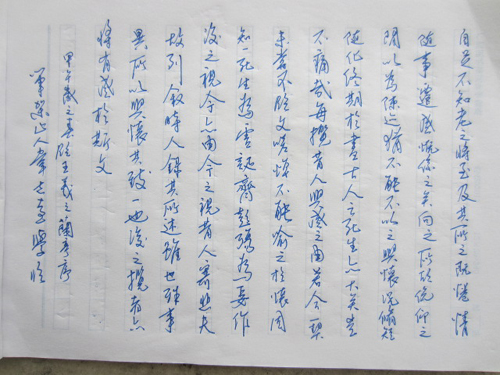 自足不知老之將至及其所之既倦情
随事遷感慨係之矣向之所欣俛仰之
間以為陳迹猶不能不以之興懷況脩短
随化終期於盡古人云死生亦大矣豈
不痛哉每攬昔人興感之由若合一契
未嘗不臨文嗟悼不能喻之於懷固
知一死生為虛誕齊彭殤為妄作
後之視今亦由今之視昔悲夫
故列敘時人錄其所述雖世殊事
異所以興懷其致一也後之攬者亦
將有感於斯文
甲午歲之臨王羲之蘭亭序